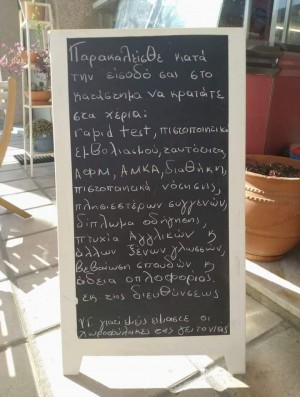 Παρακαλείσθε κατά
την είσοδό σας στο
κατάστημα να κρατάτε
στα χέρια:
rapid test, πιστοποιητικό
εμβολιασμού, ταυτότητα,
ΑΦΜ, ΑΜΚΑ, διαθήκη,
πιστοποιητικά νόσησης,
πλησιεστέρων συγγενών,
δίπλωμα οδήγησης,
πτυχία Αγγλικών ή
άλλων ξένων γλωσσών,
βεβαίωση σπουδών ή
άδεια οπλοφορίας.
εκ της διευθύνσεως
ΥΓ. γιατί εμείς είμαστε οι
χωροφύλακες της γειτονιάς